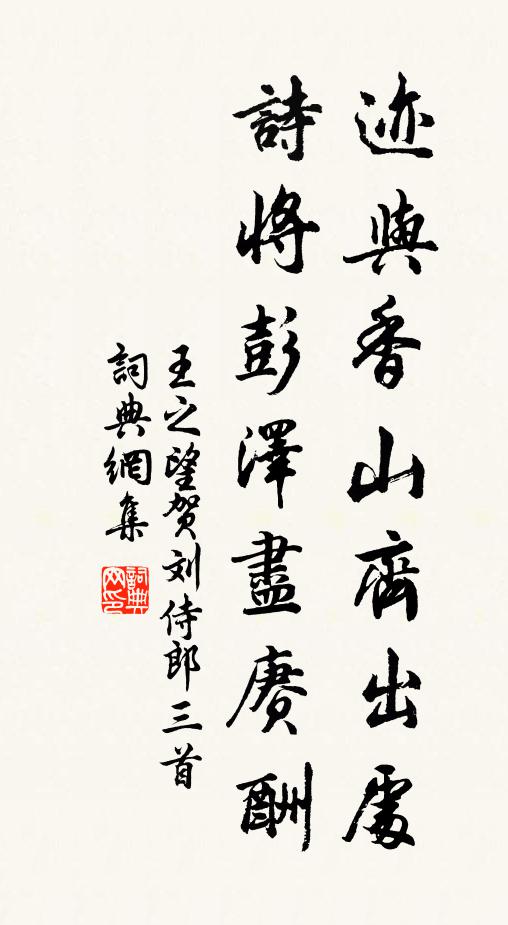 迹與香山齊出處
詩將彭澤盡賡酬
王之望贺刘侍郎三首
詞典網集
詞典網印